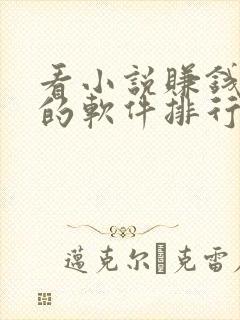 看小說賺錢
的軟件排行
邁克尔·克雷